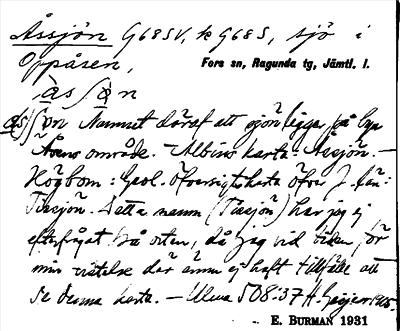 Åssjön G68SV, k G68S, sjö i
Oppåsen,
Fors sn, Ragunda tg, Jämtl. l.
Namnet däraf att sjön ligger på byn
Åsens område. – Albins karta: Åssjön. –
Högbom: Geol. öfversigtskarta öfver J. län:
Tissjön. Detta namn (Tissjön) har jag ej
efterfrågat på orten, då jag vid tiden för
min vistelse där ännu ej haft tillfälle att
se denna karta. – Ulma 508:37 H. Geijer
E. BURMAN 1931